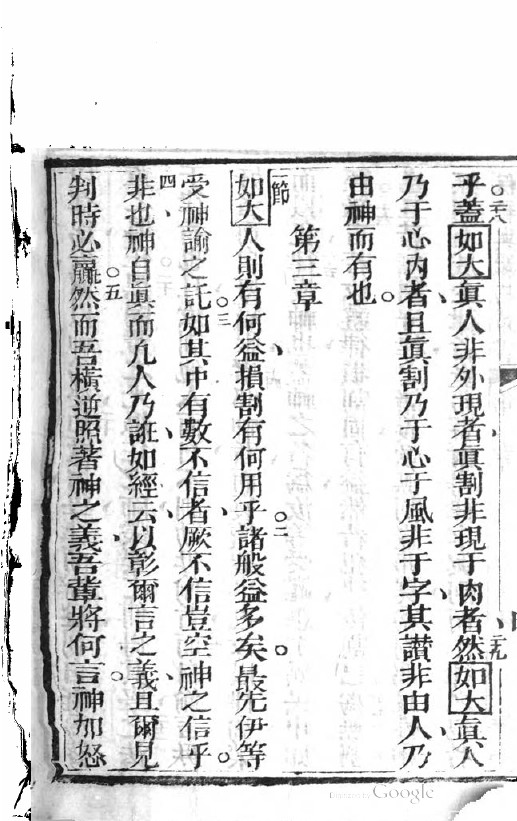 乎蓋如大眞人非外現者眞割非現于肉者然如大眞人
乃于心內者且眞割乃于心于風非于字其讃非由人乃
由神而有也
第三章
節如大人則有何益損割有何用乎諸般益多矣最先伊等
受神諭之託如其中有數不信者厥不信豈空神之信乎
非也神自眞而凡人乃誑如經云以彰爾言之義且爾見
判時必贏然而吾橫逆照著神之義吾輩將何言神加怒
二八
二九
二
三
四
五
Digitized by Google